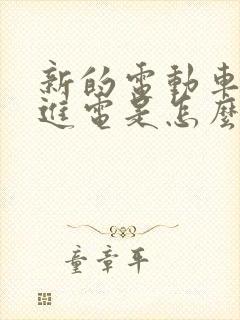 新的電動車
進電是怎麼
童章平